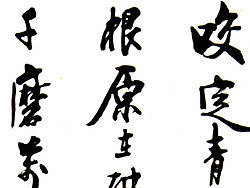 咬定青
根原在
千磨萬